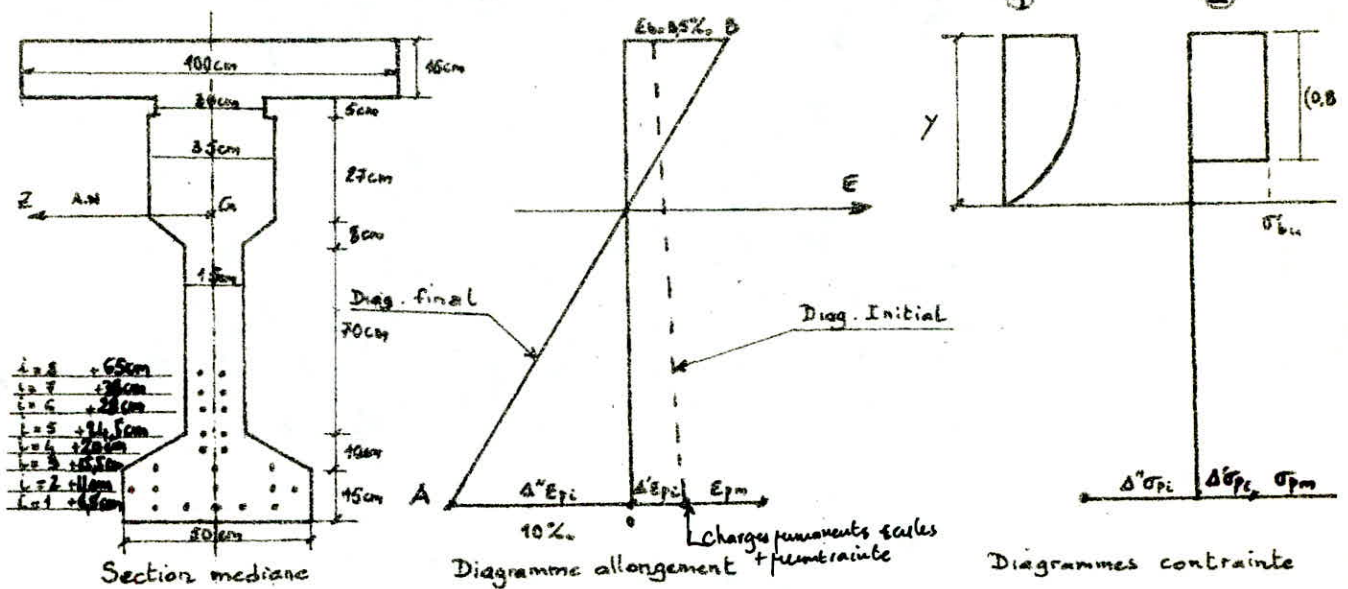 ① ②
100cm
16cm
5cm
35cm
27cm
Z A.N G
8cm
15cm
70cm
i=8 +65cm
i=7
i=6 +28cm
i=5 +24,5cm
i=4 +20cm
i=3 +15,5cm
i=2 +11cm
i=1
10cm
15cm
50cm
Section mediane
B
E
Diag. final
Diag. Initial
A
Δ"Epi Δ'Epi Epm
10‰
0
Charges permanents seules
Diagramme allongement + precontrainte
Y
(0,8
σbu
Δ"σpi Δ'σpi σpm
Diagrammes contrainte